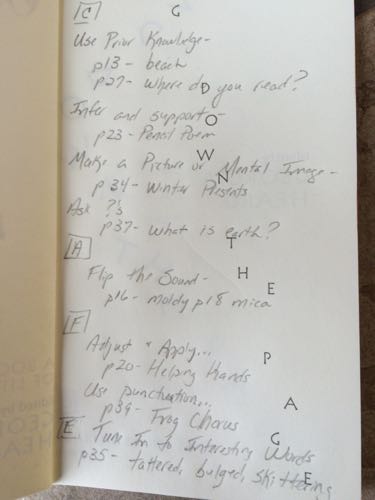 C
G
Use Prior Knowledge-
p13- beach
p27- Where do you read?
D
Infer and support-
O
p23- Pencil Poem
W
Make a Picture or Mental Image-
N
p34- Winter Presents
Ask ?'s
p37- What is earth?
T
A
H
Flip the Sound-
E
p16- moldy p18 mica
F
Adjust & Apply...
P
p20- Helping Hands
Use punctuation...
A
p39- Frog Chorus
G
E Tune In to Interesting Words
E
p35- tattered, bulged, skittering